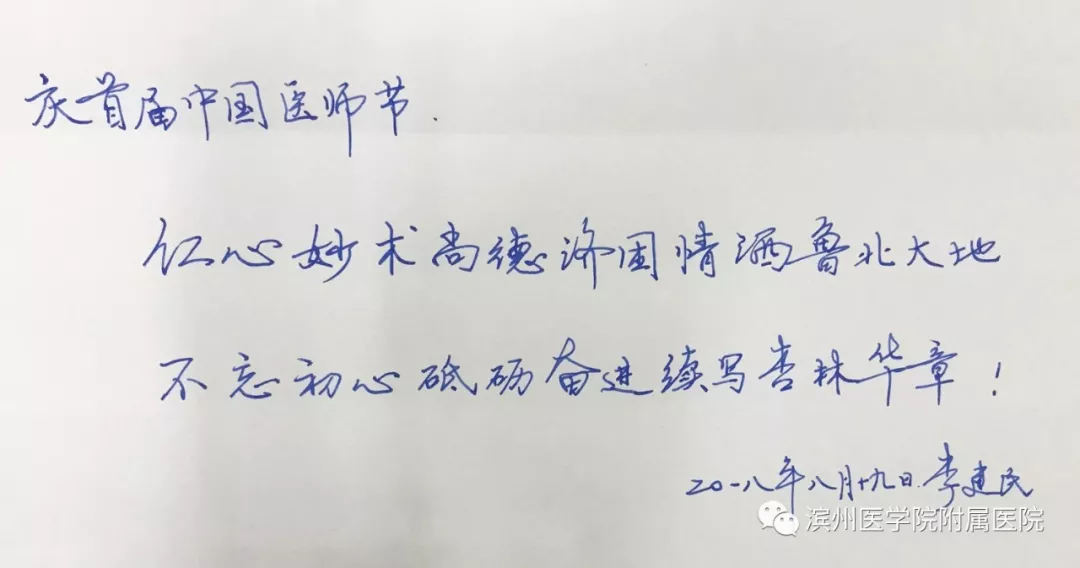 庆首届中国医师节.
仁心妙术尚德济困情洒鲁北大地
不忘初心砥砺奋进续写杏林华章!
二0一八年八月十九日.李建民
滨州医学院附属医院